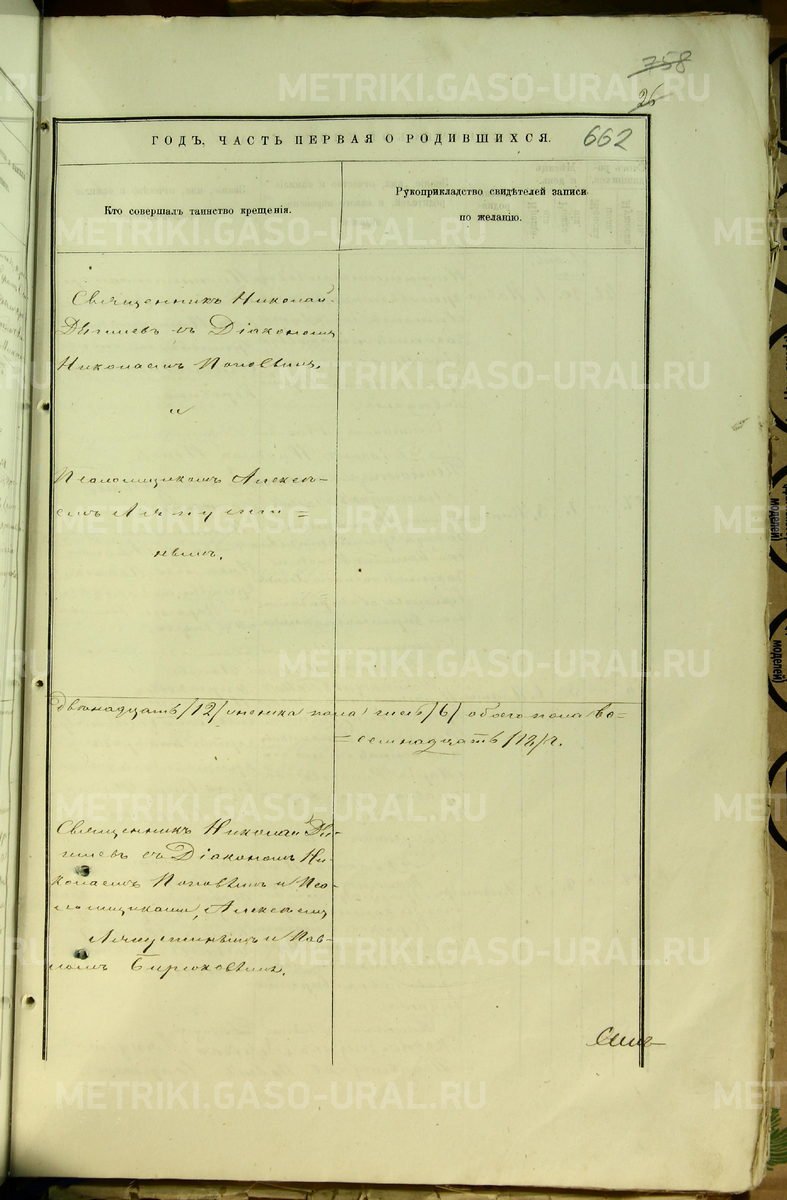 758
26
662
ГОДЪ. ЧАСТЬ ПЕРВАЯ О РОДИВШИХСЯ.
Кто совершалъ таинство крещенія.
Рукоприкладство свидѣтелей записи
по желанію.
Священникъ Николай
съ Діакономъ
Николаемъ Поповымъ
и
Псаломщикомъ Алексѣ-
емъ
нымъ.
Двѣнадцать /12/ женска пола шесть /6/ обоего пола во=
=семнадцать /18/ ч.
Священникъ Николай
съ Діакономъ Ни-
колаемъ Поповымъ и Пса-
ломщиками, Алексѣемъ
и Пав-
ломъ Бирюковымъ.
METRIKI.GASO-URAL.RU
METRIKI.GASO-URAL.RU
METRIKI.GASO-URAL.RU
METRIKI.GASO-URAL.RU
METRIKI.GASO-URAL.RU
METRIKI.GASO-URAL.RU
METRIKI.GASO-URAL.RU
моделей)
моделей)